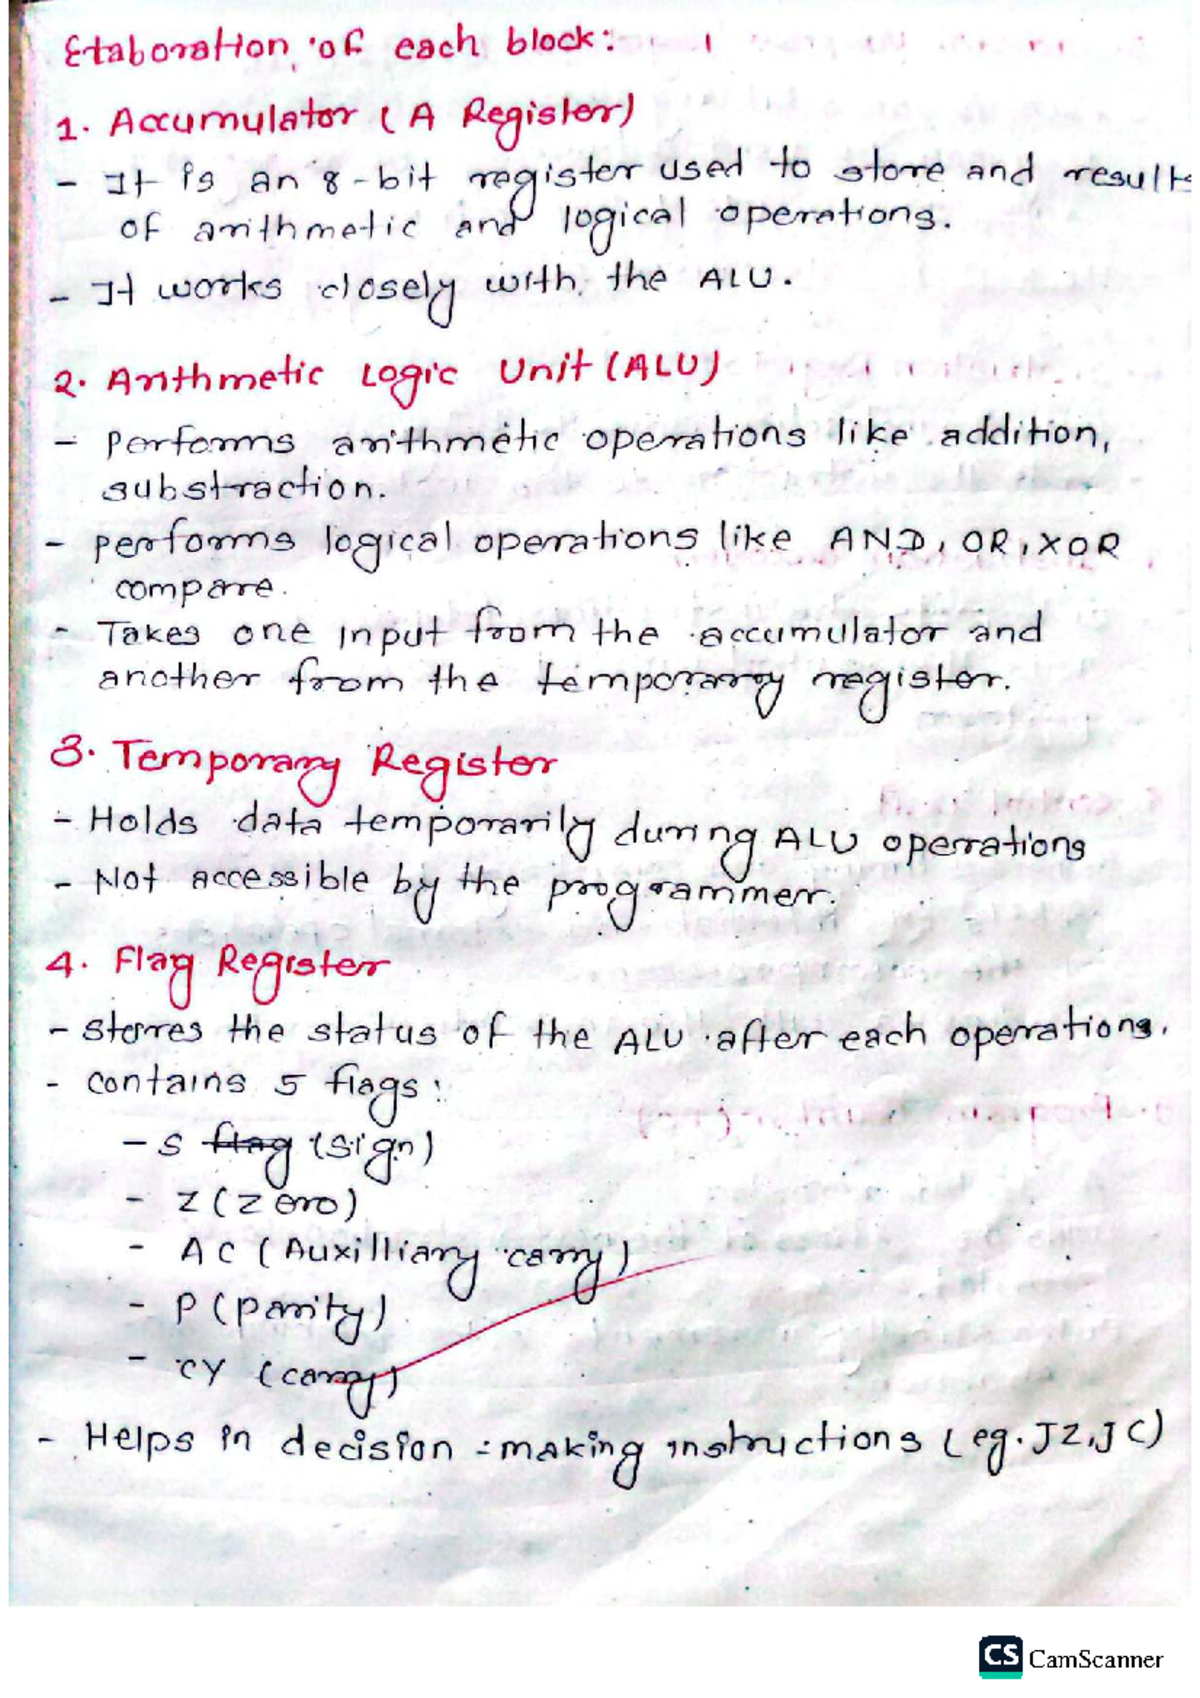 Elaboration of each block:
1. Accumulator (A Register)
- It is an 8-bit register used to store and results
of arithmetic and logical operations.
- It works closely with the ALU.
2. Arithmetic Logic Unit (ALU)
- Performs arithmetic operations like addition,
substraction.
- performs logical operations like AND, OR, XOR
compare.
- Takes one input from the accumulator and
another from the temporary register.
3. Temporary Register
- Holds data temporarily during ALU operations
- Not accessible by the programmer.
4. Flag Register
- stores the status of the ALU after each operations.
- contains 5 flags:
- S flag (sign)
- Z (Zero)
- AC (Auxilliary carry)
- P (parity)
- CY (carry)
- Helps in decision-making instructions (eg. JZ, JC)
CS CamScanner